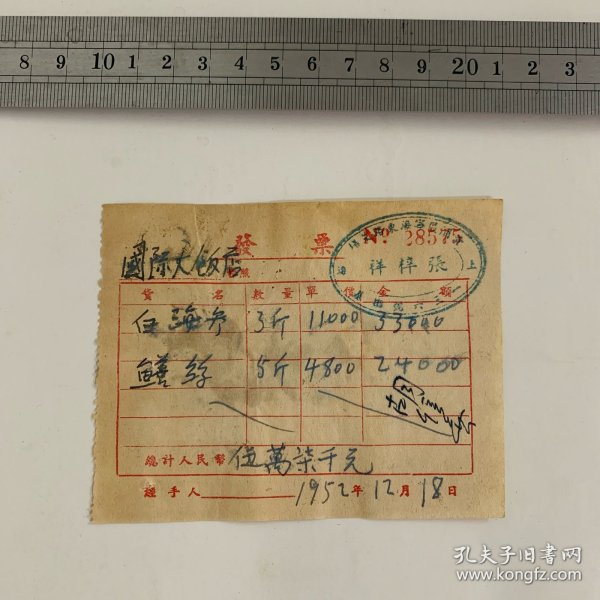 8 9 10 1 2 3 4 5 6 7 8 9 20 1 2 3
發 票 No 28575
國际大飯店
上海
張梓祥
貨 名 數 量 單 價 金 額
白海参 3斤 11000 33000
鱔絲 5斤 4800 24000
總計人民幣 伍萬柒千元
經手人 1952年12月18日
孔夫子旧书网
www.kongfz.com